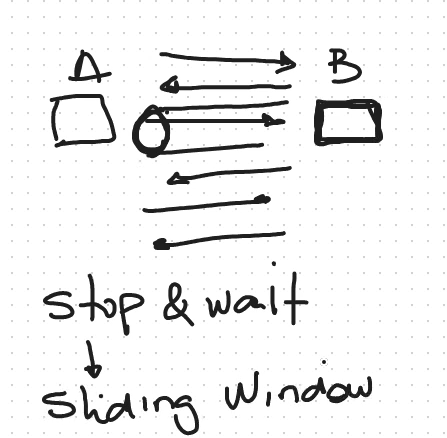 A B
stop & wait
sliding window